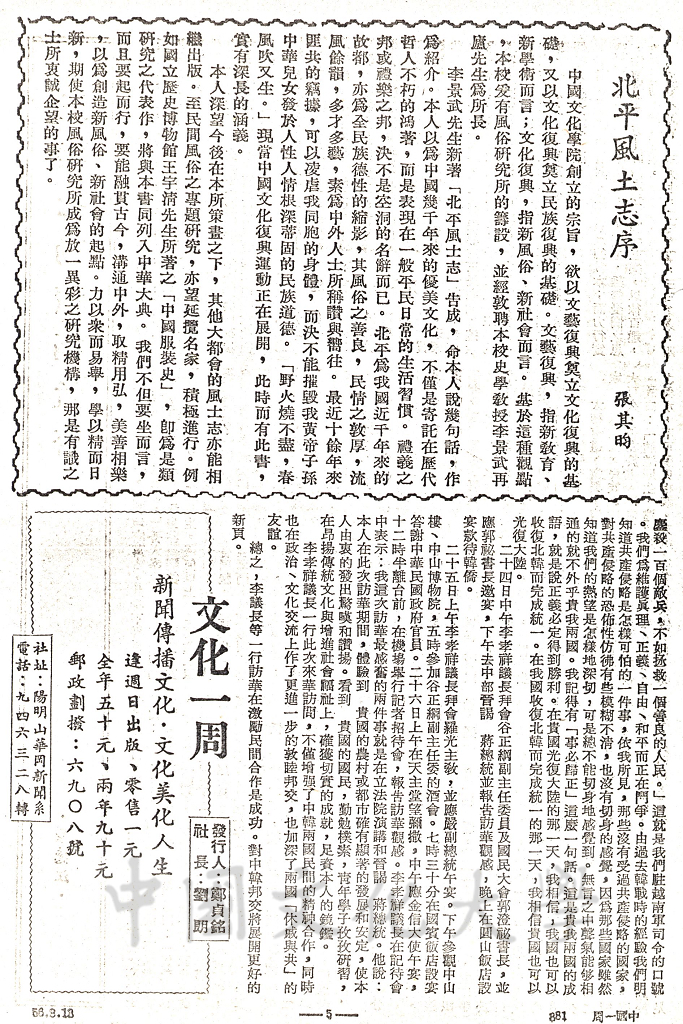 北平風土志序
張其昀
中國文化學院創立的宗旨，欲以文藝復興奠立文化復興的基
礎，又以文化復興奠立民族復興的基礎。文藝復興，指新教育、
新學術而言；文化復興，指新風俗、新社會而言。基於這種觀點
，本校爰有風俗研究所的籌設，並經敦聘本校史學教授李景武再
盧先生爲所長。
李景武先生新著「北平風土志」告成，命本人說幾句話，作
爲紹介。本人以爲中國幾千年來的優美文化，不僅是寄託在歷代
哲人不朽的鴻著，而是表現在一般平民日常的生活習慣。禮義之
邦或禮樂之邦，決不是空洞的名辭而已。北平爲我國近千年來的
故都，亦爲全民族德性的縮影，其風俗之善良，民情之敦厚，流
風餘韻，多才多藝，素爲中外人士所稱讚與嚮往。最近十餘年來
匪共的竊據，可以凌虐我同胞的身體，而決不能摧毀我黃帝子孫
中華兒女發於人性人情根深蒂固的民族道德。「野火燒不盡，春
風吹又生。」現當中國文化復興運動正在展開，此時而有此書，
實有深長的涵義。
本人深望今後在本所策畫之下，其他大都會的風土志亦能相
繼出版。至民間風俗之專題研究，亦望延攬名家，積極進行。例
如國立歷史博物館王宇清先生所著之「中國服裝史」，卽爲是類
研究之代表作，將與本書同列入中華大典。我們不但要坐而言，
而且要起而行，要能融貫古今，溝通中外，取精用弘，美善相樂
，以爲創造新風俗、新社會的起點。力以衆而易舉，學以精而日
新，期使本校風俗研究所成爲放一異彩之研究機構，那是有識之
士所衷誠企望的事了。
塵殺一百個敵兵，不如拯救一個善良的人民。」這就是我們駐越南軍司令的口號
。我們爲維護眞理、正義、自由、和平而正在鬥爭。由過去韓戰時的經驗我們明
知道共產侵略是怎樣可怕的一件事，依我所見，那些沒有受過共產侵略的國家，
對共產侵略的恐怖性仿彿有些模糊不清，也沒有切身的感覺，因爲那些國家雖然
知道我們的熱望是怎樣地深切，可是總不能切身地感覺到。無言之中聲氣能够相
通的就不外乎貴我兩國。我記得有「事必歸正」這麼一句話，這是貴我兩國的成
語，就是說正義必定得到勝利。在貴國光復大陸的那一天，我相信，我國也可以
收復北韓而完成統一。在我國收復北韓而完成統一的那一天，我相信貴國也可以
光復大陸。
二十四日中午李孝祥議長拜會谷正綱副主任委員及國民大會郭澄秘書長，並
應郭祕書長邀宴，下午去中部晉謁　蔣總統並報告訪華觀感，晚上在圓山飯店設
宴款待韓僑。
二十五日上午李孝祥議長拜會羅光主敎，並應嚴副總統午宴。下午參觀中山
樓、中山博物院，五時參加谷正綱副主任委的酒會。七時三十分在國賓飯店設宴
答謝中華民國政府官員。二十六日上午在天主堂望彌撒，中午應金信大使午宴，
十二時半離台前，在機場舉行記者招待會，報告訪華觀感。李孝祥議長在記者會
中表示：我這次訪華最感奮的兩件事就是在立法院演講和晉謁　蔣總統。他說：
本人在此次訪華期間，體驗到　貴國的農村或都市確有顯著的發展和安定，使本
人由衷的發出驚嘆和讚揚。看到　貴國的國民，勤勉樸素，靑年學子孜孜研習，
在昂揚傳統文化與增進社會福祉上，確獲切實的成就，足資本人的鏡鑑。
李孝祥議長一行此次來華訪問，不僅增強了中韓兩國民間的精神合作，同時
也在政治、文化交流上作了更進一步的敦睦邦交，也加深了兩國「休戚與共」的
友誼。
總之，李議長等一行訪華在激勵民間合作是成功。對中韓邦交將展開更好的
新頁。
文化一周
發行人：鄭貞銘
社　長：劉　朗
新聞傳播文化・文化美化人生
逢週日出版、零售一元
全年五十元、兩年九十元
郵政劃撥：六九〇八號
社址：陽明山華岡新聞系
電話：九四六三二八轉
中國文化大學
56.3.13
—5—
881　周一國中